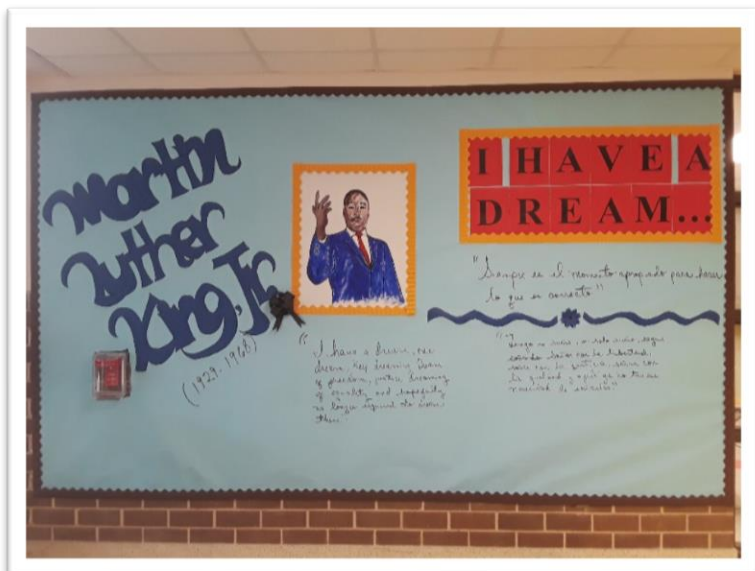 Martin
Luther
King, Jr.
(1929-1968)
I HAVE A
DREAM...
"Siempre es el momento apropiado para hacer
lo que es correcto"
"I have a dream, one
dream, keep dreaming. Dream
of freedom, justice dreaming
of equality and hopefully
no longer
them."
"Tengo un sueño, un solo sueño, seguir
soñando. Soñar con la libertad,
soñar con la justicia, soñar con
la igualdad y ojalá ya no tuviera
necesidad de soñarlas."